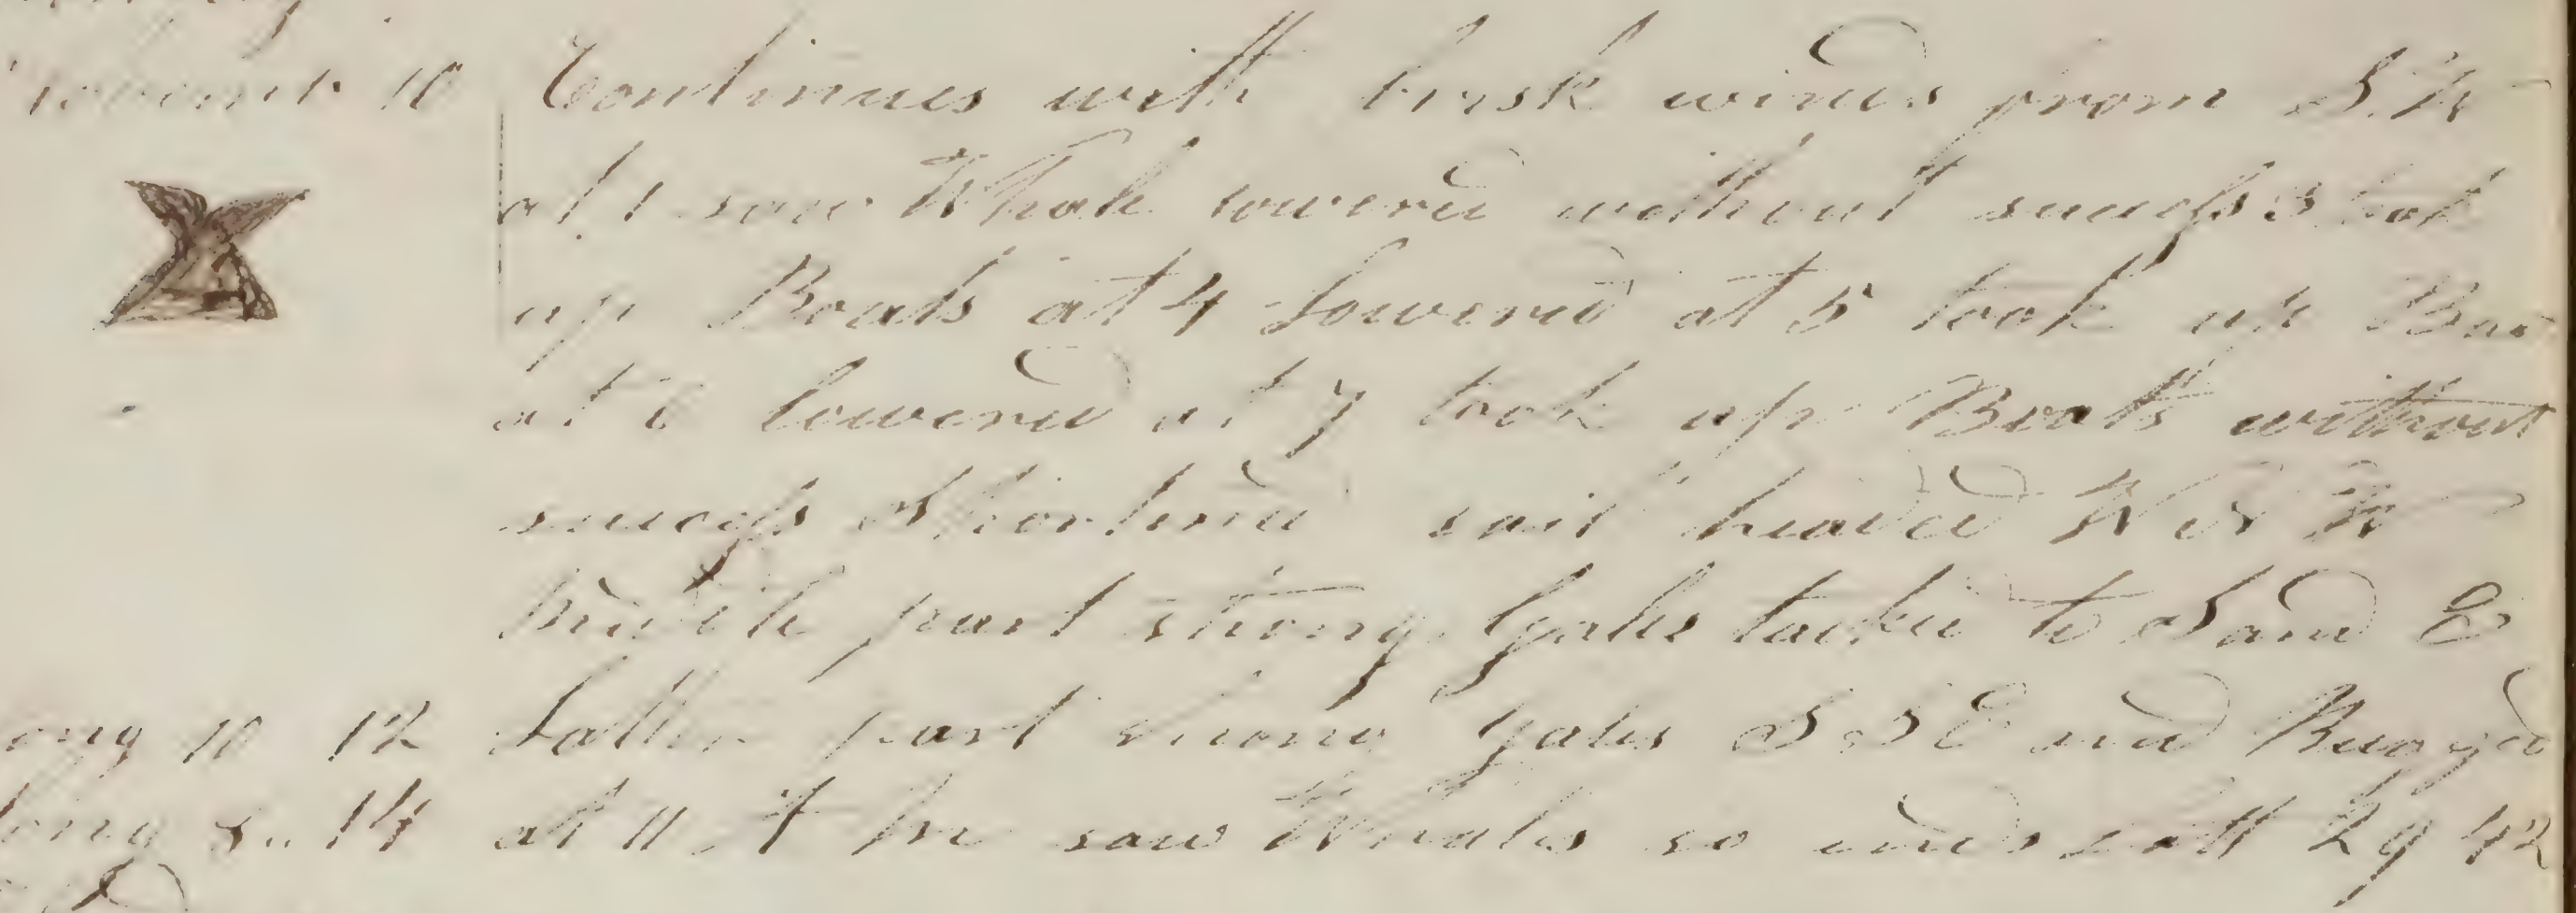 Continues with brisk winds from S.W
at 1 saw Whale lowered without success took
up Boats at 4 Lowered at 5 took up Boa
at 6 lowered at 7 took up Boats without
success Shortened sail headed W
Middle part strong gales tacked to S and E
Latter part strong gales S S E and Rugged
at 11 saw Whales so ends Latt 29 42